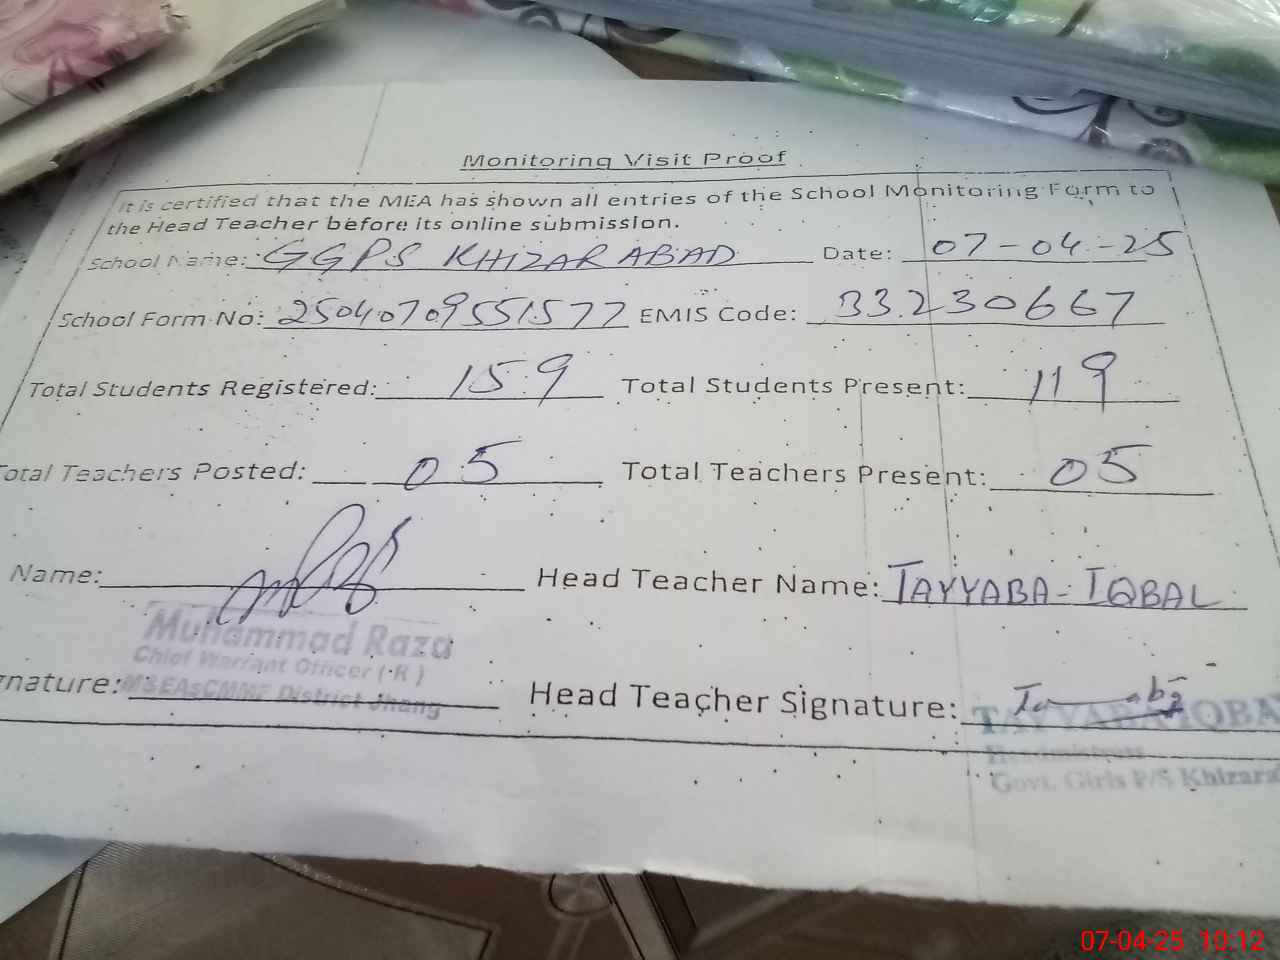 Monitoring Visit Proof
It is certified that the MEA has shown all entries of the School Monitoring Form to
the Head Teacher before its online submission.
School Name: GGPS KHIZAR ABAD Date: 07-04-25
School Form No: 25040709551577 EMIS Code: 33230667
Total Students Registered: 159 Total Students Present: 119
Total Teachers Posted: 05 Total Teachers Present: 05
Name: Head Teacher Name: TAYYABA-IQBAL
Muhammad Raza
Chief Warrant Officer (R)
nature: MSEAsCMMF District Jhang Head Teacher Signature:
TAYYABA IQBA
Headmistress
Govt. Girls P/S Khizara
07-04-25 10:12